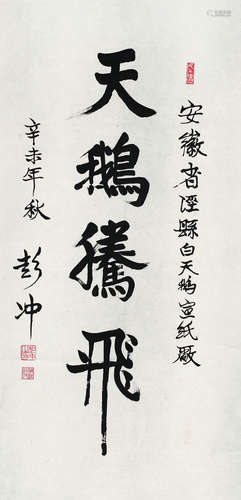 安徽省泾縣白天鹅宣纸厰
天鵝騰飛
辛未年秋
彭冲